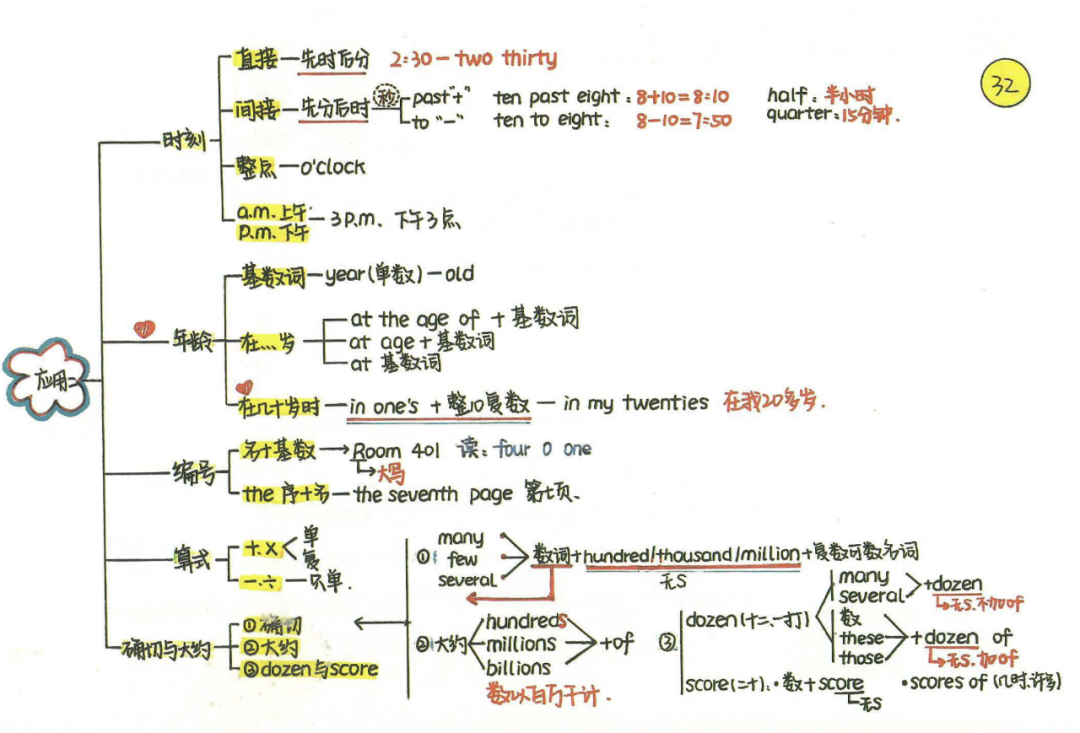 32
应用二
时刻
直接—先时后分 2:30 - two thirty
间接—先分后时
past "+" ten past eight : 8+10=8:10 half : 半小时
to "-" ten to eight : 8-10=7:50 quarter : 15分钟.
整点—o'clock
a.m. 上午.
p.m. 下午
3 p.m. 下午3点
年龄
基数词—year(单数)—old
在...岁
at the age of + 基数词
at age + 基数词
at 基数词
在几十岁时—in one's + 整10复数—in my twenties 在我20多岁.
编号
名+基数→Room 401 读: four 0 one
大写
the 序+名—the seventh page 第七页.
算式
+.×
单
复
-.÷ 只单.
确切与大约
①确切
②大约
③dozen与score
①
many
few
several
数词+hundred/thousand/million+复数可数名词
无s
②大约
hundreds
millions
billions
+of
数以百万千计.
③
dozen(十二、一打)
many
several
+dozen
无s.不加of
数
these
those
+dozen of
无s.加of
score(二十): ·数+score ·scores of (几时.许多)
无s